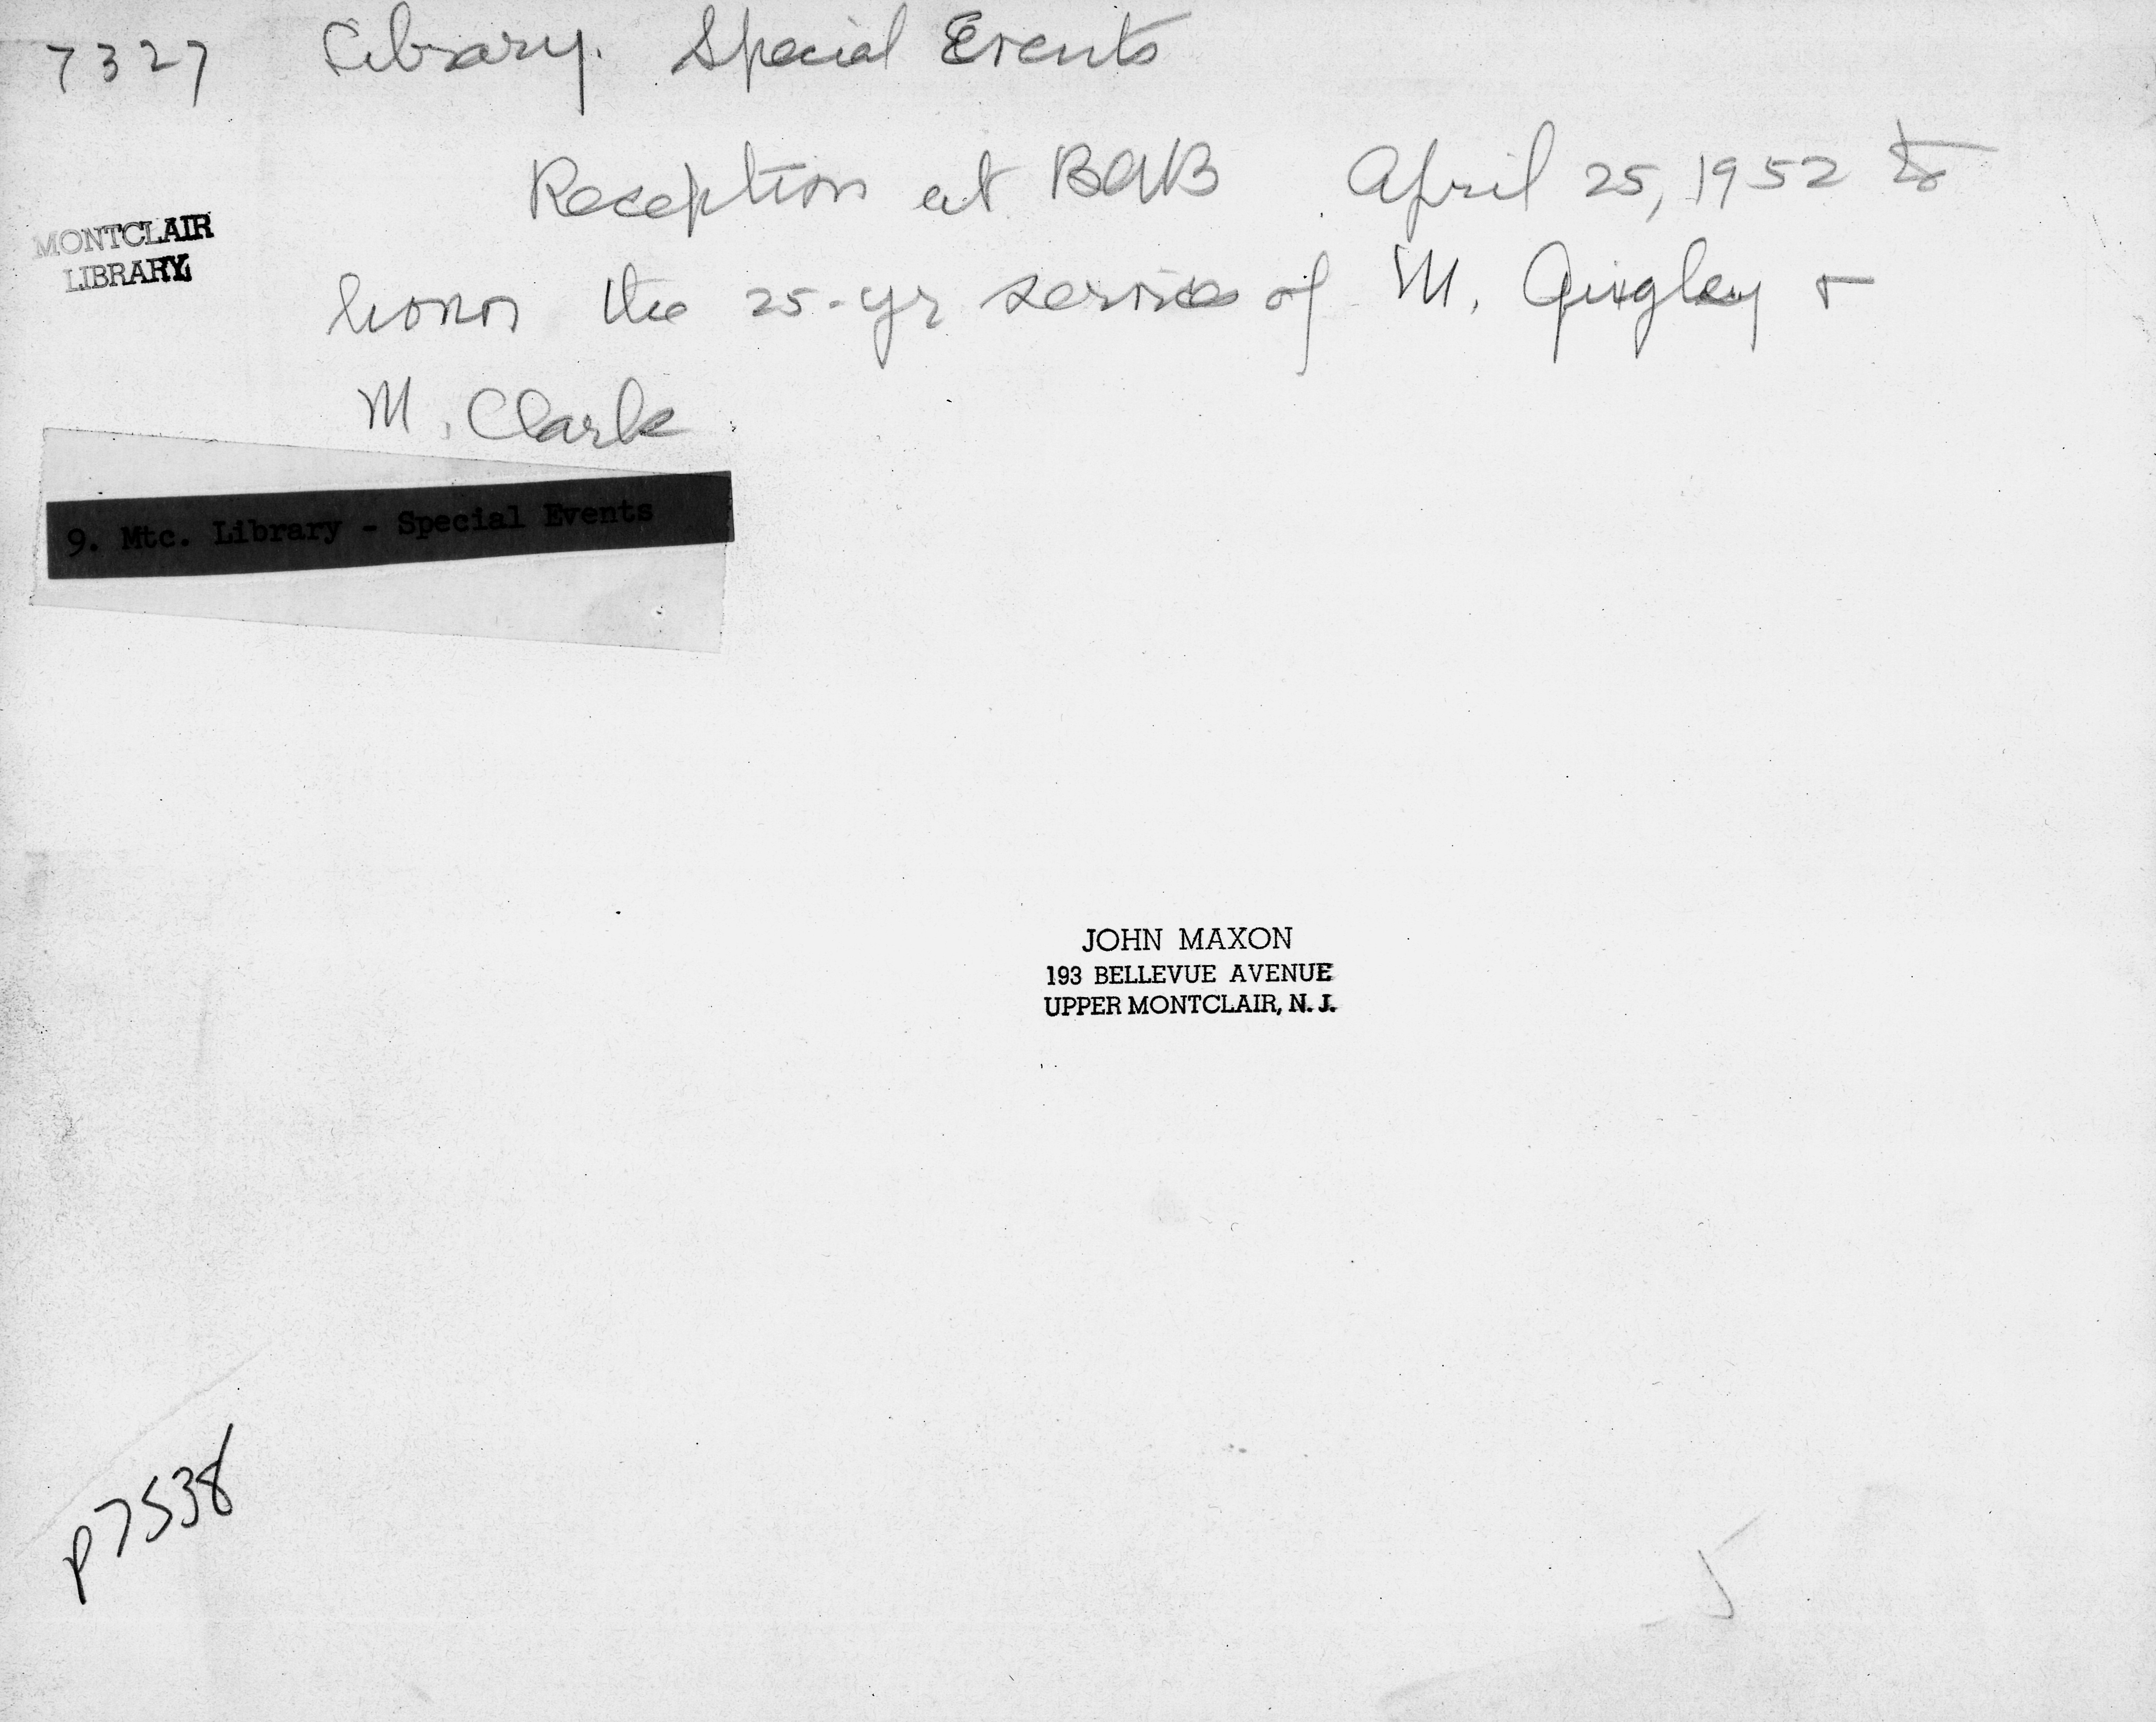 7327 Library. Special Events
Reception at BAB April 25, 1952 to
MONTCLAIR
LIBRARY
honor the 25-yr service of M. Quigley &
M. Clark
9. Mtc. Library - Special Events
JOHN MAXON
193 BELLEVUE AVENUE
UPPER MONTCLAIR, N. J.
P7538
5